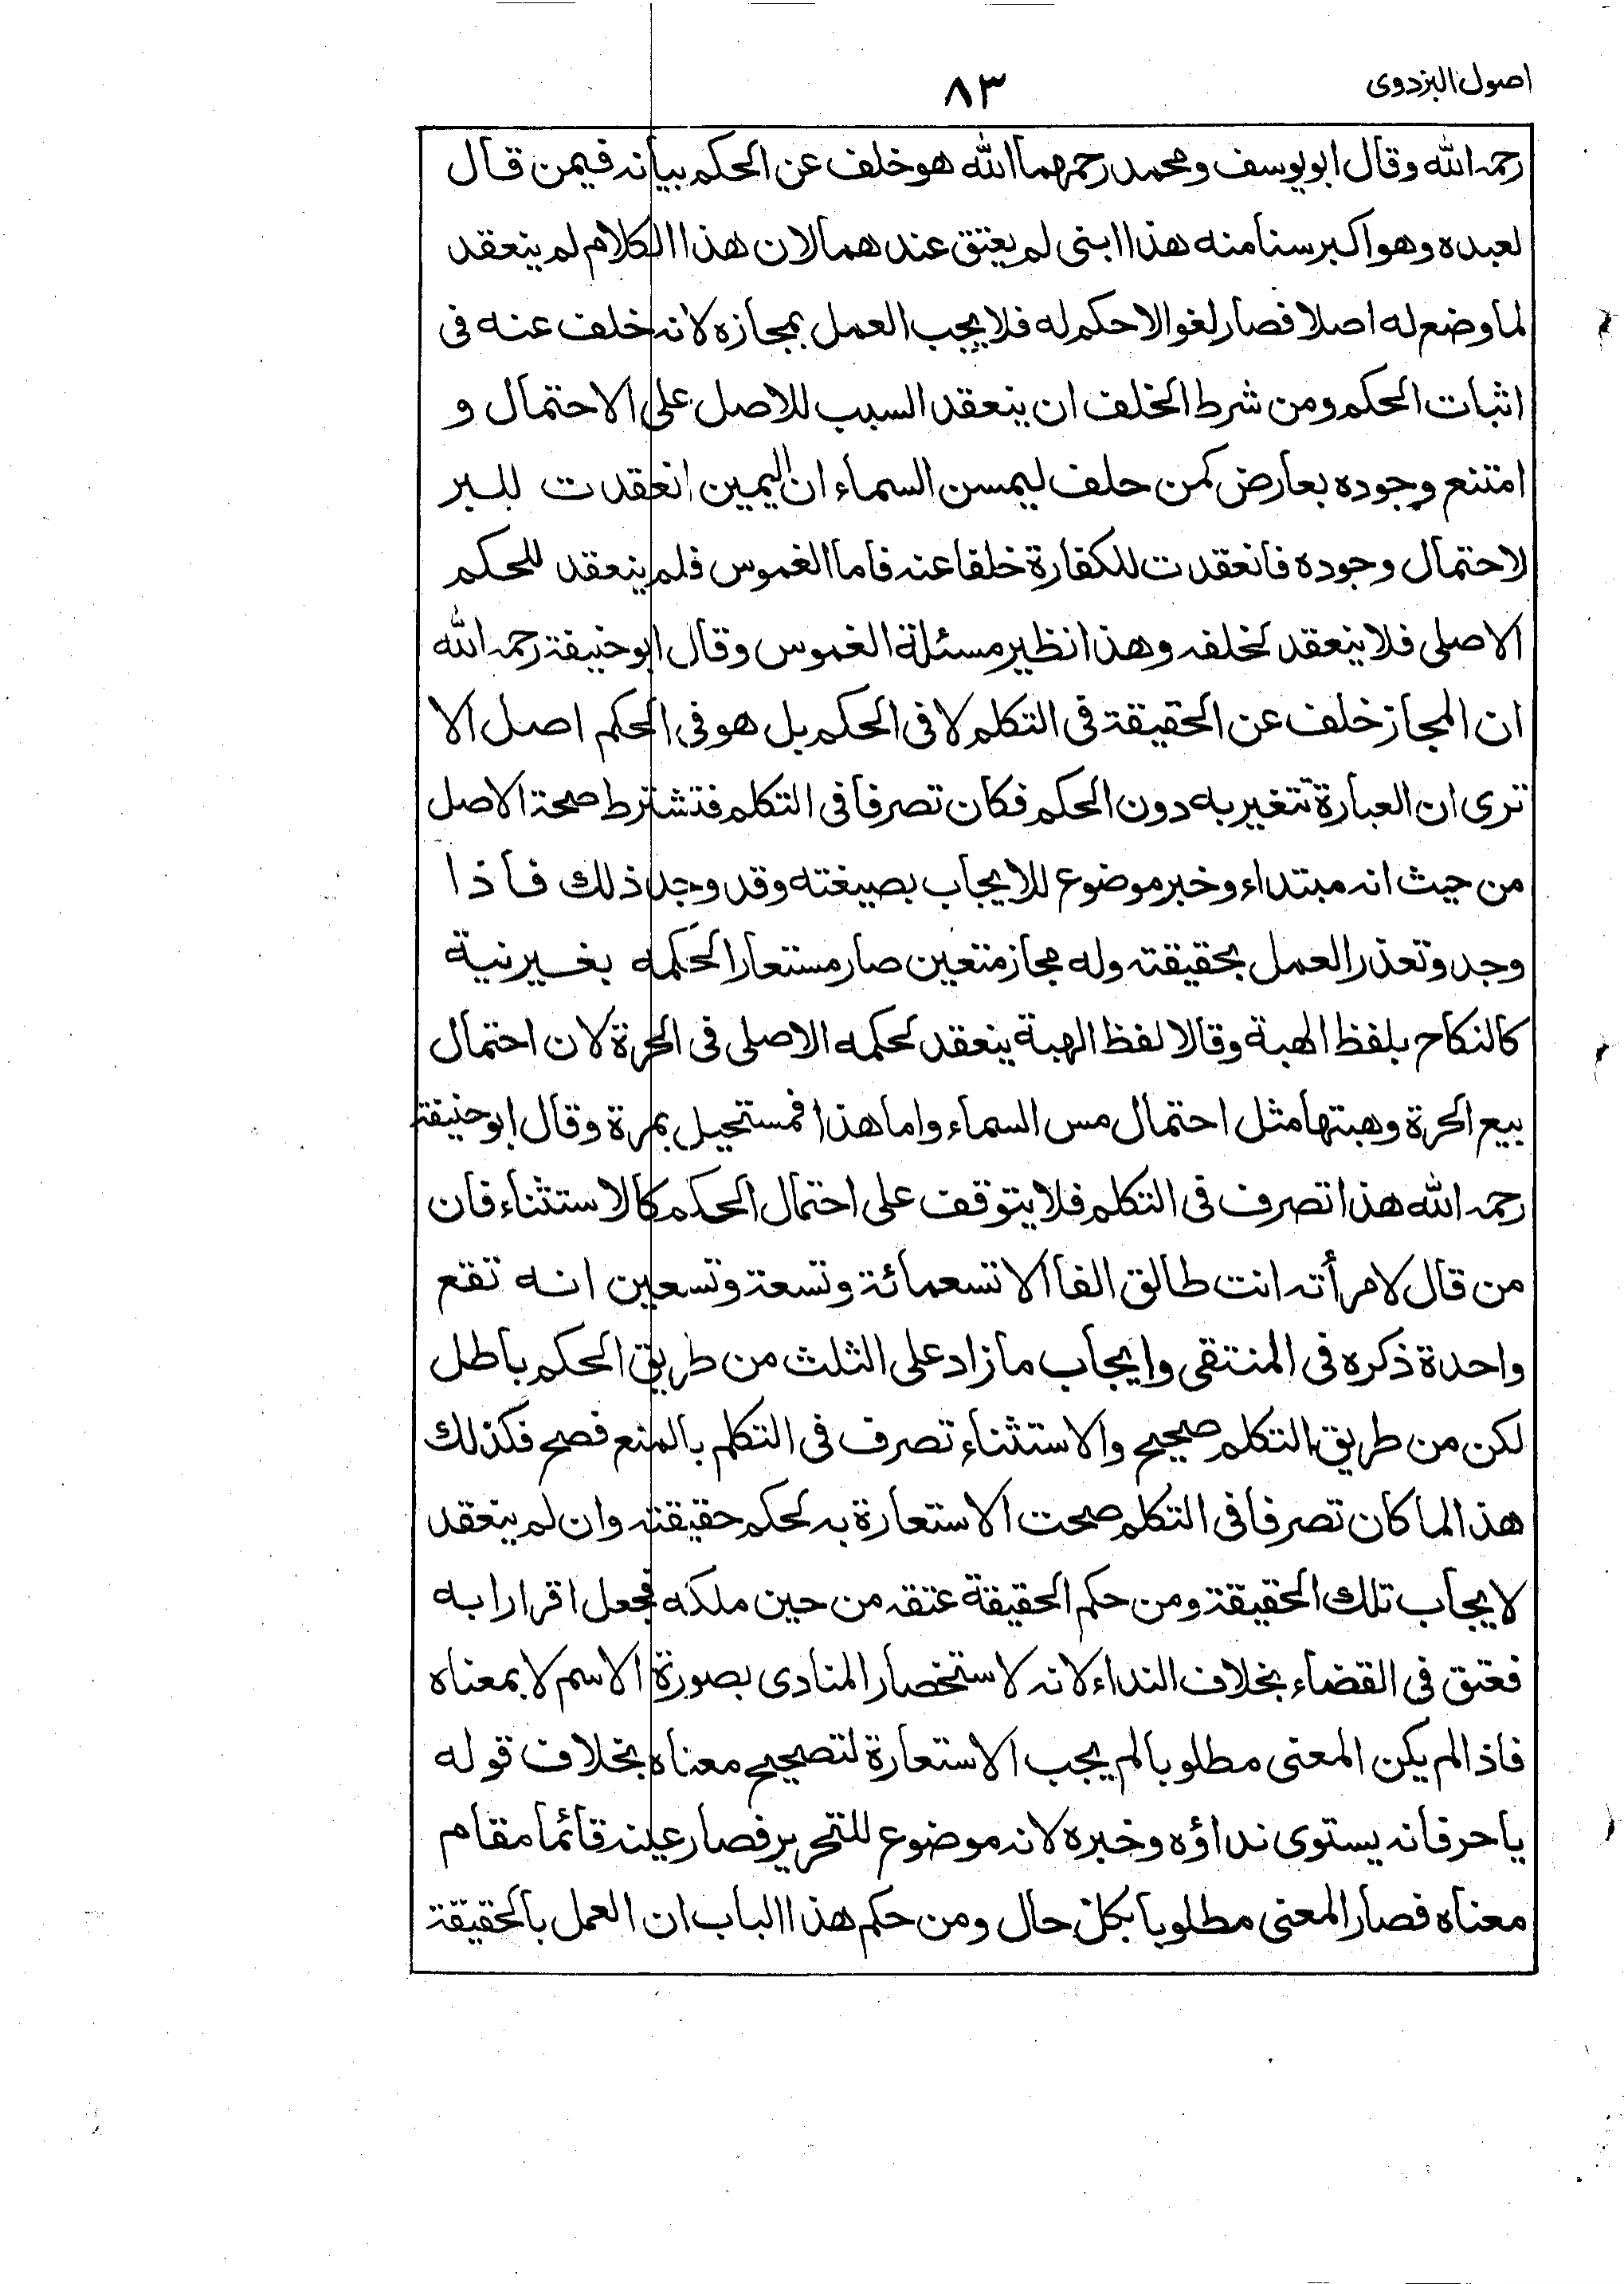 اصول البزدوى
٨٣
رحمه الله وقال ابو يوسف ومحمد رحمهما الله هو خلف عن الحكم بيانه فيمن قال
لعبده وهو اكبر سنا منه هذا ابنى لم يعتق عندهما لان هذا الكلام لم ينعقد
لما وضع له اصلا فصار لغوا لا حكم له فلا يجب العمل بمجازه لانه خلف عنه فى
اثبات الحكم ومن شرط الخلف ان ينعقد السبب للاصل على الاحتمال و
امتنع وجوده بعارض كمن حلف ليمسن السماء ان اليمين انعقدت للبر
لاحتمال وجوده فانعقدت للكفارة خلفا عنه فاما الغموس فلم ينعقد للحكم
الاصلى فلا ينعقد لخلفه وهذا نظير مسئلة الغموس وقال ابو حنيفة رحمه الله
ان المجاز خلف عن الحقيقة فى التكلم لا فى الحكم بل هو فى الحكم اصل الا
ترى ان العبارة تتغير به دون الحكم فكان تصرفا فى التكلم فتشترط صحة الاصل
من حيث انه مبتداء وخبر موضوع للايجاب بصيغته وقد وجد ذلك فاذا
وجد وتعذر العمل بحقيقته وله مجاز متعين صار مستعارا لحكمه بغير نية
كالنكاح بلفظ الهبة وقالا لفظ الهبة ينعقد لحكمه الاصلى فى الحرة لان احتمال
بيع الحرة وهبتها مثل احتمال مس السماء واما هذا فمستحيل بمرة وقال ابو حنيفة
رحمه الله هذا تصرف فى التكلم فلا يتوقف على احتمال الحكم كالاستثناء فان
من قال لامرأته انت طالق الفا الا تسعمائة وتسعة وتسعين انه تقع
واحدة ذكره فى المنتقى وايجاب ما زاد على الثلث من طريق الحكم باطل
لكن من طريق التكلم صحيح والاستثناء تصرف فى التكلم بالمنع فصح فكذلك
هذا لما كان تصرفا فى التكلم صحت الاستعارة به لحكم حقيقته وان لم ينعقد
لايجاب تلك الحقيقة ومن حكم الحقيقة عتقه من حين ملكه فجعل اقرارا به
فعتق فى القضاء بخلاف النداء لانه لاستحضار المنادى بصورة الاسم لا بمعناه
فاذا لم يكن المعنى مطلوبا لم يجب الاستعارة لتصحيح معناه بخلاف قوله
يا حر فانه يستوى نداؤه وخبره لانه موضوع للتحرير فصار عينه قائما مقام
معناه فصار المعنى مطلوبا بكل حال ومن حكم هذا الباب ان العمل بالحقيقة